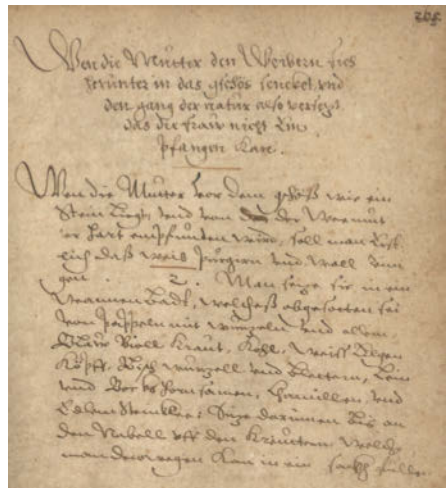 Wen die Mutter den Weibern sich
herunter in das gschos sencket vnd
den gang der natur also verseżt
das die fraw nicht Em
pfangen Kan.
Wen die Mutter vor dem gschoß wie ein
Stein ligt, vnd von der Wermut
er hart empfunden wird, soll man Erst
lich daß weib purgirn vnd woll
gen. 2. Man seze sie in ein
warmen Badt, welches abgesotten sei
von Pappeln mit wurzeln vnd allem,
Blaw Viell Kraut, Kohl, Weiss Ilgen
Köpff, wurzell vnd Blettern, Lein
vnd Bocks horn samen, Chamillen, vnd
Edlem Steinklee: Seze darinnen bis an
den Nabell vff den Kreuttern welche
man derowegen Kan in ein sackh füllen